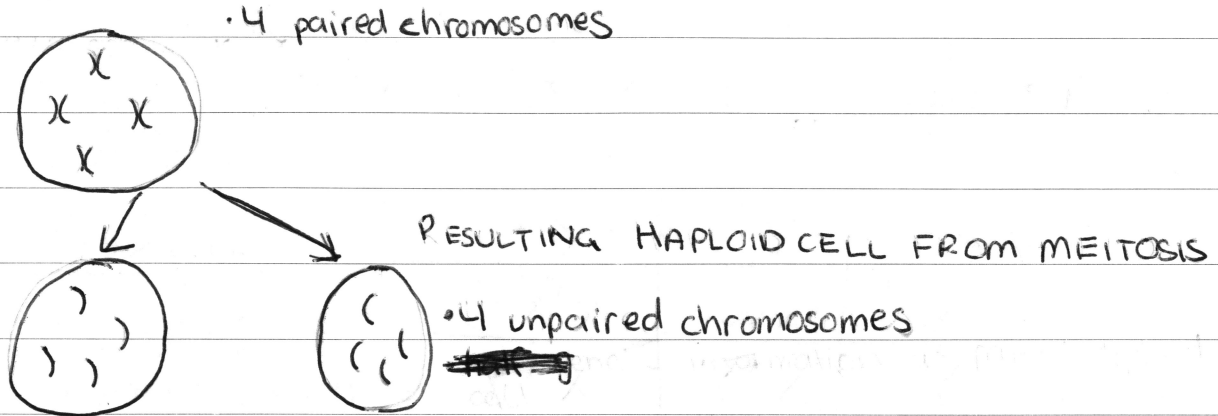 ·4 paired chromosomes
RESULTING HAPLOID CELL FROM MEITOSIS
·4 unpaired chromosomes